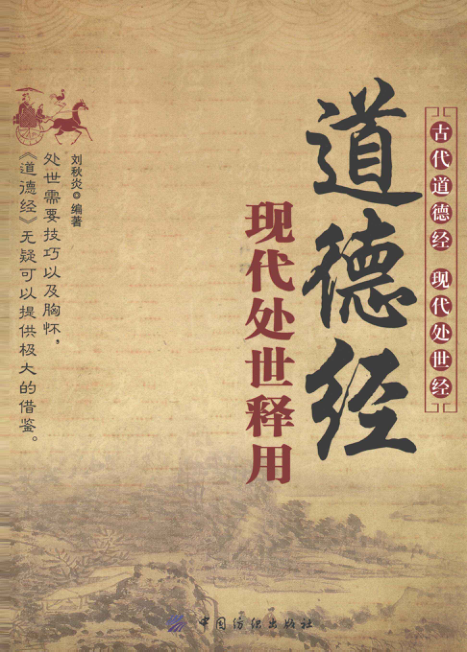 古代道德经 现代处世经
道德经
现代处世释用
刘秋炎 编著
处世需要技巧以及胸怀，
《道德经》无疑可以提供极大的借鉴。
中国纺织出版社